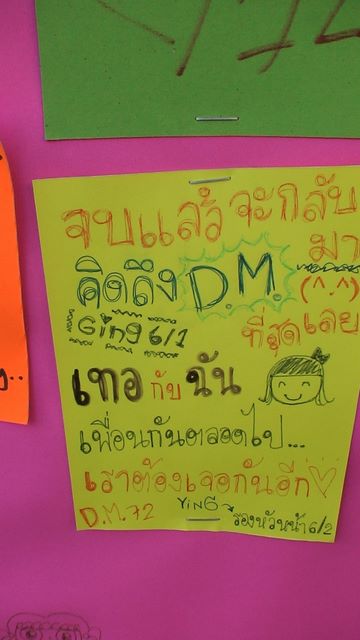 จบแล้วจะกลับ
มา
คิดถึง D.M. (^.^)
Ging 6/1 ที่สุดเลย
เทอ กับ ฉัน
เพื่อนกันตลอดไป...
เราต้องเจอกันอีก♡
D.M.72 YinG รองหัวหน้า 6/2